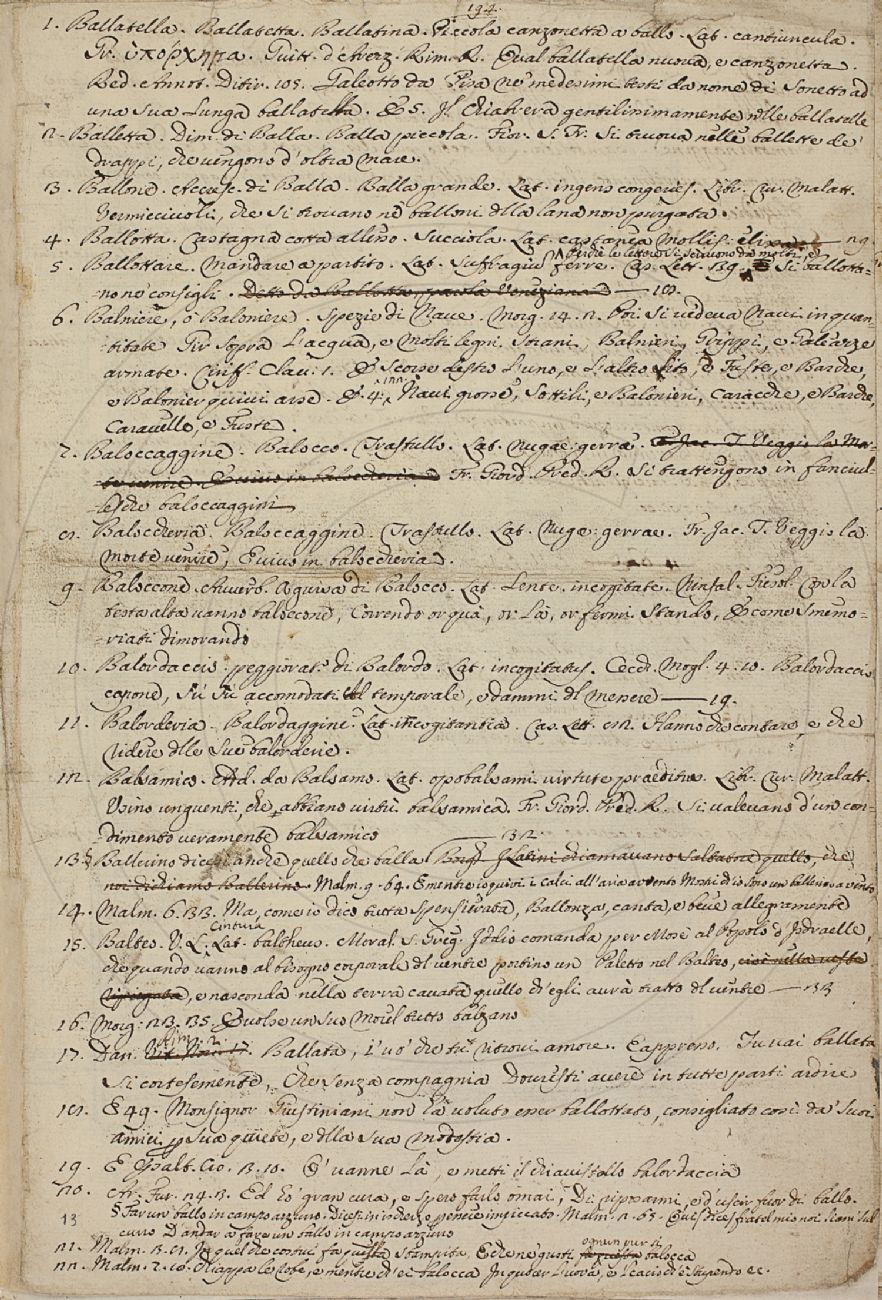 194.
1. Ballatella. Ballatetta. Ballatina. Piccola canzonetta a ballo. Lat. cantiuncula.
Gr. ὑπόρχημα. Guitt. d'Arezz. Rim. R. Qual ballatella nuova, e canzonetta.
Red. Annot. Ditir. 105. Galeotto da Pisa ne' medesimi testi da nome di Sonetto ad
una sua lunga ballatella. E 5. Il Chiabrera gentilissimamente nelle ballatelle
2. Balletta. Dim. di Balla. Balla piccola. Fior. S. Fr. Si truova nelle ballette de'
drappi, che vengono d'oltra mare.
3. Ballone. Accresc. di Balla. Balla grande. Lat. ingens congeries. Libr. cur. Malatt.
Vermicciuoli, che si trovano ne' balloni della lana non purgata.
4. Ballotta. Castagna cotta allesso. Succiola. Lat. castanea mollis. elixa. 29.
5. Ballottare. Mandare a partito. Lat. suffragium ferre. Cas. Lett. 139. Si ballotta-
perchè le lettere si scrivono da molti, e
-no ne' consigli. Detto da Ballotta, parola Veneziana — 18.
6. Balniere, o Baloniere. Spezie di Nave. Morg. 14. 2. Poi si vedeva Navi in quan-
-titate Gir sopra l'acqua, e molti legni strani, Balnieri, Grippi, e Galeazze
armate. Ciriff. Calv. 1. E scorse destro l'uno, e l'altro lito, e Fuste, e Barche,
e Balonier quivi arse. E 4. Navi grosse, sottili, e Balonieri, Caracche, e Barche,
Caravelle, e Fuste.
7. Baloccaggine. Balocco. Trastullo. Lat. nugae, gerrae. Fr. Jac. T. Veggio la Mor-
te venire, E vivo in baloccheria. Fr. Giord. Pred. R. Si trattengono in fanciul-
-lesche baloccaggini
8. Baloccheria. Baloccaggine. Trastullo. Lat. Nugae, gerrae. Fr. Jac. T. Veggio la
morte venire, E vivo in baloccheria.
9. Baloccone. Avverb. A guisa di Balocco. Lat. Lente, incogitate. Mensal. Fiesol. Con la
testa alta vanno baloccone, Correndo or quà, or là, or fermi stando, E come smemo-
-riati dimorando
10. Balordaccio. peggiorat. di Balordo. Lat. incogitatus. Cecch. Mogl. 4. 10. Balordaccio
capone, sù sù accomodati al temporale, e dammi del messere — 19.
11. Balorderia. Balordaggine. Lat. incogitantia. Cas. Lett. 82. Hanno che contare, e che
ridere delle sue balorderie.
12. Balsamico. Add. da Balsamo. Lat. opobalsami virtute praeditus. Libr. cur. Malatt.
Usino unguenti, che abbiano virtù balsamica. Fr. Giord. Pred. R. Si valevano d'un con-
-dimento veramente balsamico — 132.
13. § Ballerino dicesi anche quello che balla. I Latini chiamavano Saltatore quello, che
noi dichiamo Ballerino. Malm. 9. 64. E mentre io quivi i calci all'aria avvento Mostri ch'io sono un ballerino a vento
14. Malm. 6. 33. Ma, come io dico tutta spensierata, Ballonza, canta, e beve allegramente
Cintura
15. Balteo. V. L. Lat. baltheus. Moral. S. Greg. Iddio comanda per Mosè al Popolo d'Isdraelle,
che quando vanno al bisogno corporale del ventre portino un Paletto nel Balteo, cioè nella vesta
ripiegata, e nasconda nella terra cavata quello ch'egli avrà tratto del ventre — 33
16. Morg. 23. 35. E volse un suo Morel tutto balzano
17. Dan. Rim. 2. Vit. Nuov. 17. Ballata, i' vo' che tu ritrovi amore. E appresso. Tu vai ballata
sì cortesemente, Che senza compagnia Dovresti avere in tutte parti ardire
18. E 49. Monsignor Giustiniani non ha voluto esser ballottato, consigliato così da' suoi
amici p sua quiete, e della sua modestia.
19. E Spalt. Cio. 3. 10. E vanne là, e metti il chiavistello balordaccia
20. Ar. Fur. 24. 3. Ed ho gran cura, e spero farlo omai, Di riposarmi, e d'uscir fuor di ballo.
13 § Far un ballo in campo azzurro. Dicesi in ischerzo per essere impiccato. Malm. 2. 65. E vi si dice fratel mio noi siam sul
curro D'andar a fare un ballo in campo azzurro
ognun pur si
21. Malm. 3. 8. In quel che costui fa questa stampita, E che ne' gusti balocca
22. Malm. 7. 10. Chiappa le robe, e mentre ch'ei balocca In quocer l'uova, e 'l cacio ch'è stupendo ec.